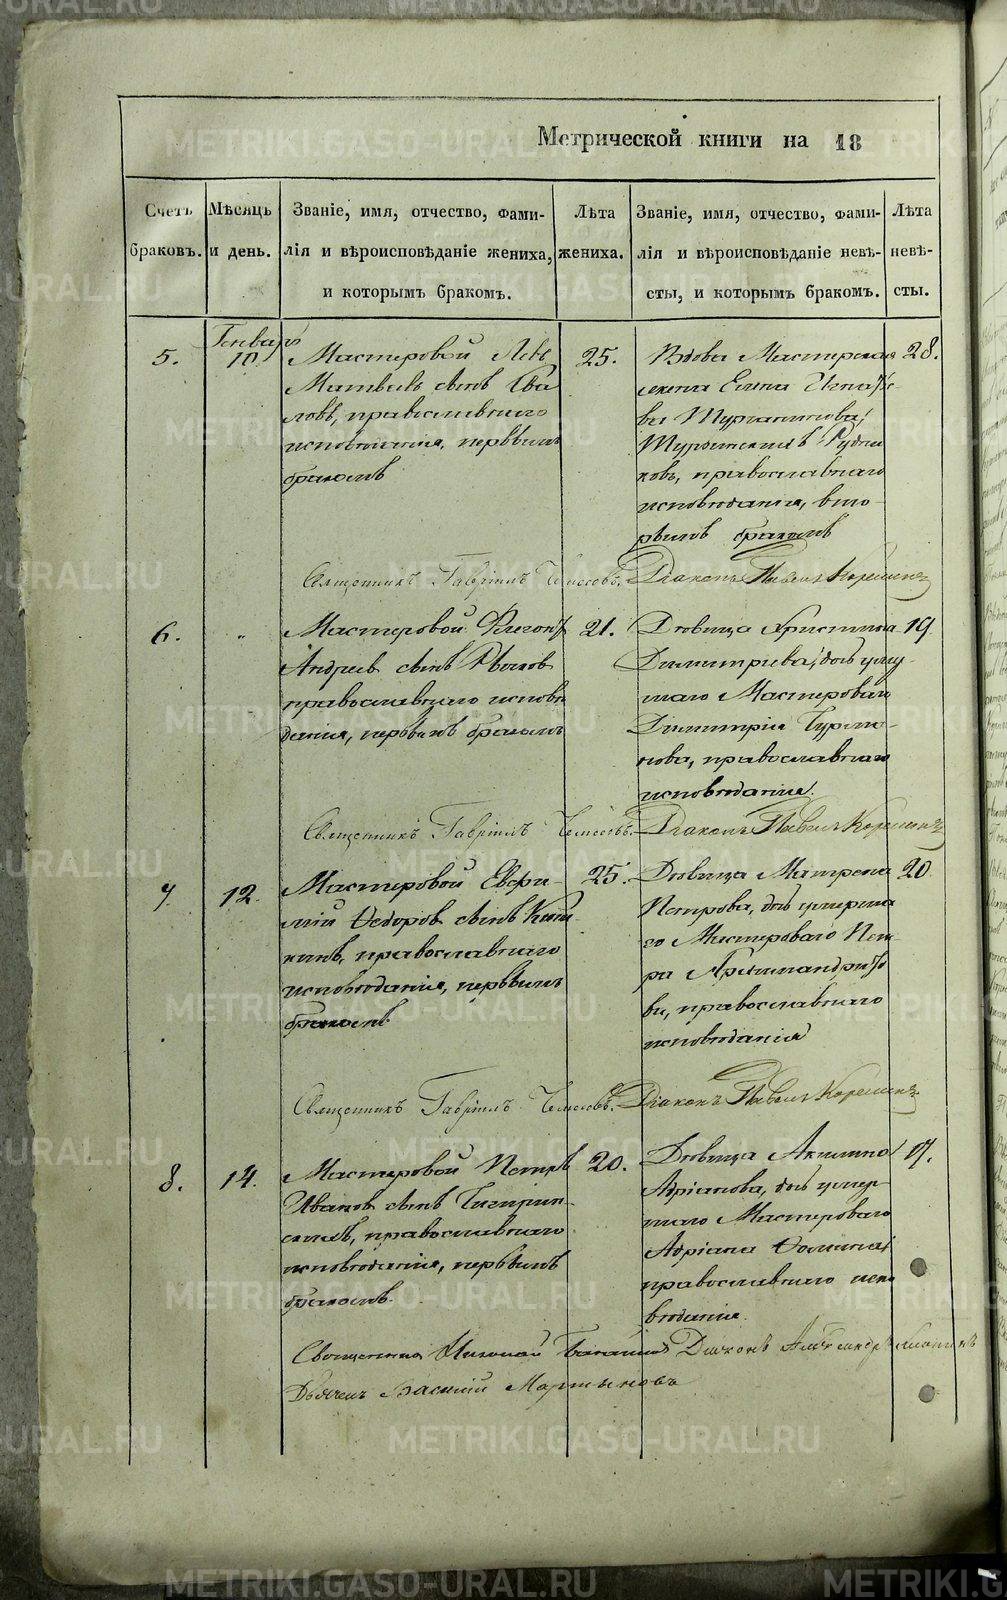 Метрической книги на 18
Счетъ браковъ.
Мѣсяцъ и день.
Званіе, имя, отчество, фами-
лія и вѣроисповѣданіе жениха,
и которымъ бракомъ.
Лѣта жениха.
Званіе, имя, отчество, фами-
лія и вѣроисповѣданіе невѣ-
сты, и которымъ бракомъ.
Лѣта невѣ-
сты.
5.
Генварь
10.
Мастеровой Левъ
Матвѣевъ сынъ
православнаго
исповѣданія, первымъ
бракомъ
25.
Вдова Мастерская
женка Елена Игнатье-
ва
Турьинскихъ Рудни-
ковъ, православнаго
исповѣданія, вто-
рымъ бракомъ
28.
Священникъ Гавріилъ Діаконъ Павелъ
6.
"
Мастеровой
Андреевъ сынъ
православнаго исповѣ
данія, первымъ бракомъ
21.
Дѣвица Христина
Димитріева, дочь умер-
шаго Мастероваго
Димитрія
православнаго
исповѣданія.
19
Священникъ Гавріилъ Діаконъ Павелъ
7.
12.
Мастеровой Евфи-
мій Ѳедоров сынъ
православнаго
исповѣданія, первымъ
бракомъ.
25.
Дѣвица Матрена
Петрова, дочь умерша
го Мастероваго Пет-
ра
православнаго
исповѣданія
20.
Священникъ Гавріилъ Діаконъ Павелъ
8.
14.
Мастеровой Петръ
Ивановъ сынъ
православнаго
исповѣданія, первымъ
бракомъ.
20.
Дѣвица Акилина
Адріанова, дочь умер-
шаго Мастероваго
Адріана Ѳомина,
православнаго испо
вѣданія.
17.
Священникъ Николай Діаконъ Александръ
Дьячекъ Василій Мартыновъ
METRIKI.GASO-URAL.RU